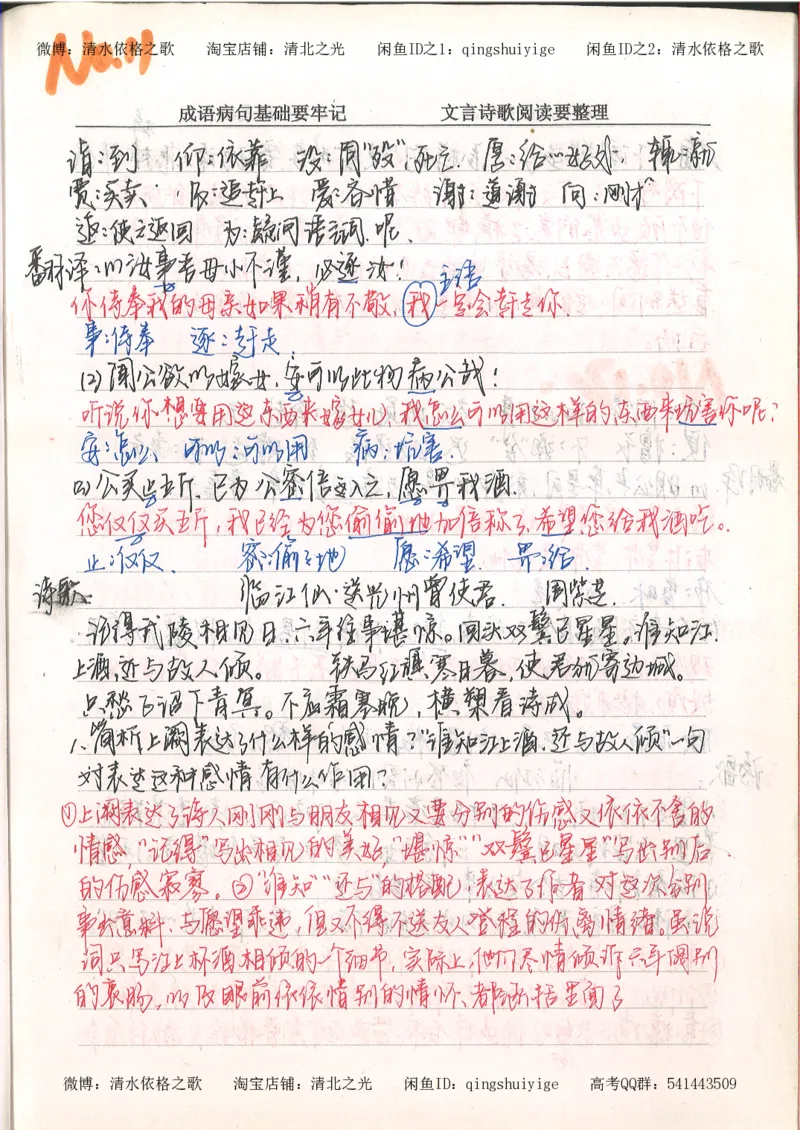 微博：清水依格之歌 淘宝店铺：清北之光 闲鱼ID之1：qingshuiyige 闲鱼ID之2：清水依格之歌
成语病句基础要牢记 文言诗歌阅读要整理
诣：到 仰：依靠 没：同"殁"，死亡 愿：给 辄：
贾：买卖 及：追赶上 爱：吝惜 谢：道谢 向：刚才
返：使之返回 为：疑问语气词.呢、
翻译：以汝事吾母小不谨，必逐汝！
主语
你侍奉我的母亲如果稍有不敬，我一定会赶走你.
事：侍奉 逐：赶走
(2)闻公欲以嫁女，安可以此物病公哉！
听说你想要用这东西来嫁女儿，我怎么可以用这样的东西来坑害你呢？
安：怎么 可以：可以用 病：坑害.
(3)公买止五斤，已为公密倍入之，愿畀我酒.
您仅仅买五斤，我已经为您偷偷地加倍称了，希望您给我酒吃。
止：仅仅、 密：偷偷地 愿：希望. 畀：给
诗歌. 临江仙·送光州曾使君. 周紫芝.
记得武陵相见日，六年往事堪惊。回头双鬓已星星。谁知江
上酒，还与故人倾。 铁马红旗寒日暮，使君犹寄边城。
只愁飞诏下青冥。不应霜塞晚，横槊看诗成。
1、简析上阕表达了什么样的感情？"谁知江上酒，还与故人倾"一句
对表达这种感情有什么作用？
①上阕表达了诗人刚刚与朋友相见又要分别的伤感又依依不舍的
情感，"记得"写出相见的美好，"堪惊""双鬓已星星"写出别后
的伤感寂寥。②"谁知""还与"的搭配，表达了作者对这次分别
事出意料、与愿望乖违，但又不得不送友人登程的伤离情绪。虽说
词只写江上杯酒相倾的一个细节，实际上，他们尽情倾诉六年阔别
的衷肠，以及眼前依依惜别的情怀，都涵括里面了
微博：清水依格之歌 淘宝店铺：清北之光 闲鱼ID：qingshuiyige 高考QQ群：541443509